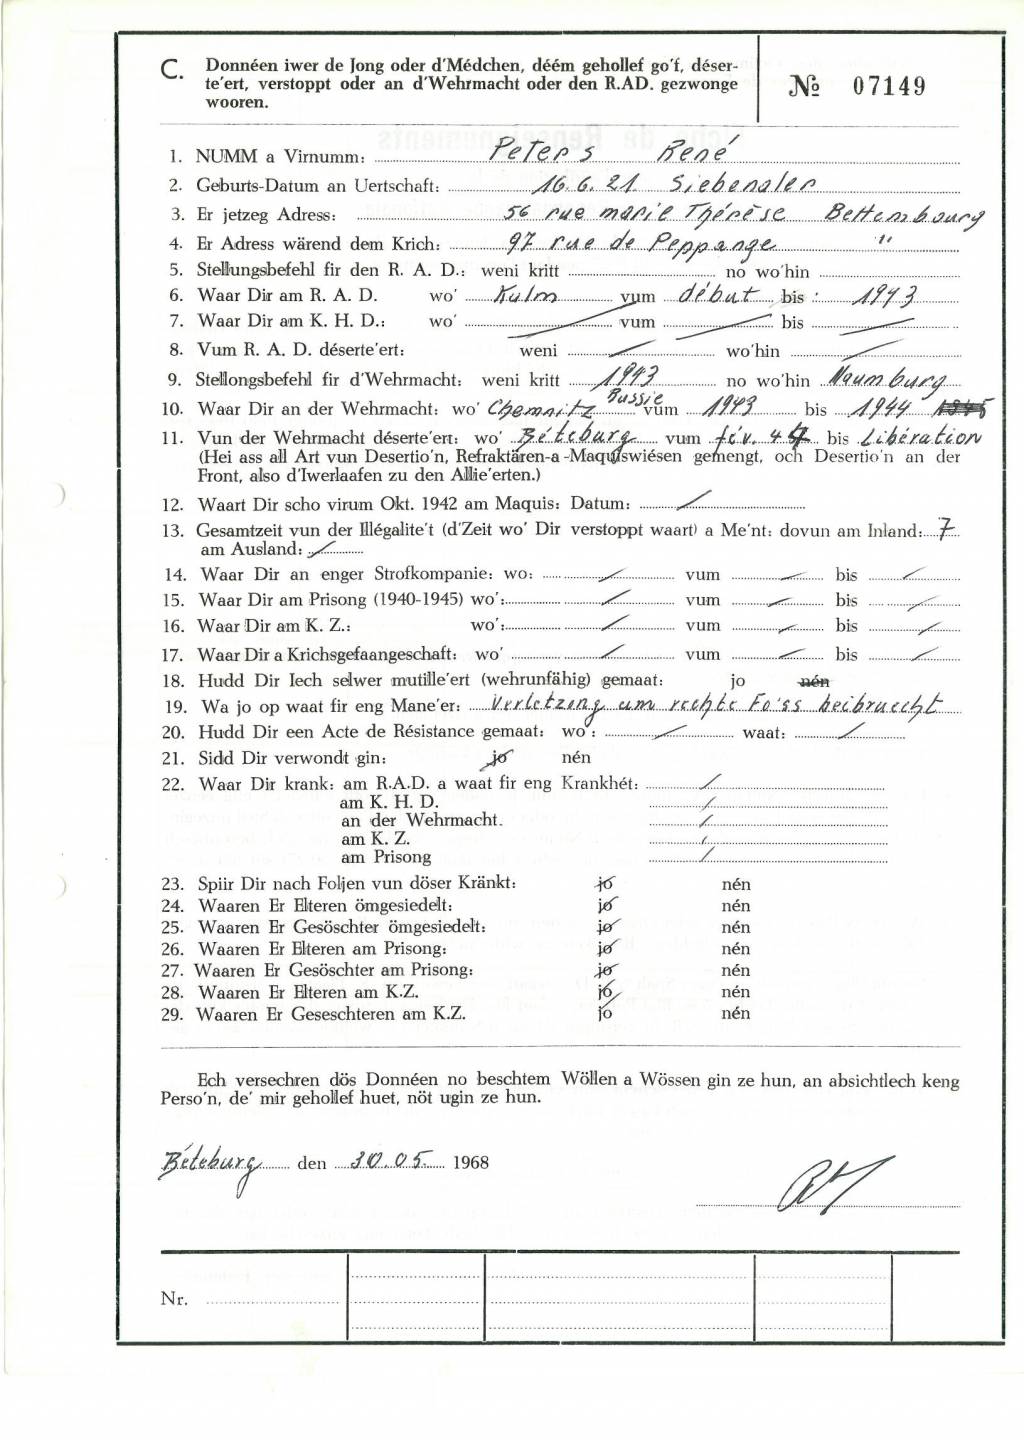 C. Donnéen iwer de Jong oder d'Médchen, déém gehollef go'f, déser-
te'ert, verstoppt oder an d'Wehrmacht oder den R.AD. gezwonge
wooren.
№ 07149
1. NUMM a Virnumm: Peters René
2. Geburts-Datum an Uertschaft: 16.6.21 Siebenaler
3. Er jetzeg Adress: 56 rue marie Thérèse Bettembourg
4. Er Adress wärend dem Krich: 97 rue de Peppange "
5. Stellungsbefehl fir den R. A. D.: weni kritt no wo'hin
6. Waar Dir am R. A. D. wo' Kulm vum début bis 1943
7. Waar Dir am K. H. D.: wo' / vum / bis /
8. Vum R. A. D. déserte'ert: weni / wo'hin /
9. Stellongsbefehl fir d'Wehrmacht: weni kritt 1943 no wo'hin Naumburg
10. Waar Dir an der Wehrmacht: wo' Chemnitz Russie vum 1943 bis 1944 1945
11. Vun der Wehrmacht déserte'ert: wo' Béteburg vum fév. 44 bis Libération
(Hei ass all Art vun Desertio'n, Refraktären-a-Maquiswiésen gemengt, och Desertio'n an der
Front, also d'Iwerlaafen zu den Allie'erten.)
12. Waart Dir scho virum Okt. 1942 am Maquis: Datum: /
13. Gesamtzeit vun der Illégalite't (d'Zeit wo' Dir verstoppt waart) a Me'nt: dovun am Inland: 7
am Ausland: /
14. Waar Dir an enger Strofkompanie: wo: / vum / bis /
15. Waar Dir am Prisong (1940-1945) wo': / vum / bis /
16. Waar Dir am K. Z.: wo': / vum / bis /
17. Waar Dir a Krichsgefaangeschaft: wo' / vum / bis /
18. Hudd Dir Iech selwer mutille'ert (wehrunfähig) gemaat: jo nén
19. Wa jo op waat fir eng Mane'er: Verletzung um rechte Fo'ss beibruecht
20. Hudd Dir een Acte de Résistance gemaat: wo': / waat: /
21. Sidd Dir verwondt gin: jo nén
22. Waar Dir krank: am R.A.D. a waat fir eng Krankhét: /
am K. H. D. /
an der Wehrmacht. /
am K. Z. /
am Prisong /
23. Spiir Dir nach Foljen vun döser Kränkt: jo nén
24. Waaren Er Elteren ömgesiedelt: jo nén
25. Waaren Er Gesöschter ömgesiedelt: jo nén
26. Waaren Er Elteren am Prisong: jo nén
27. Waaren Er Gesöschter am Prisong: jo nén
28. Waaren Er Elteren am K.Z. jo nén
29. Waaren Er Geseschteren am K.Z. jo nén
Ech versechren dös Donnéen no beschtem Wöllen a Wössen gin ze hun, an absichtlech keng
Perso'n, de' mir gehollef huet, nöt ugin ze hun.
Béteburg den 30.05. 1968
Nr.